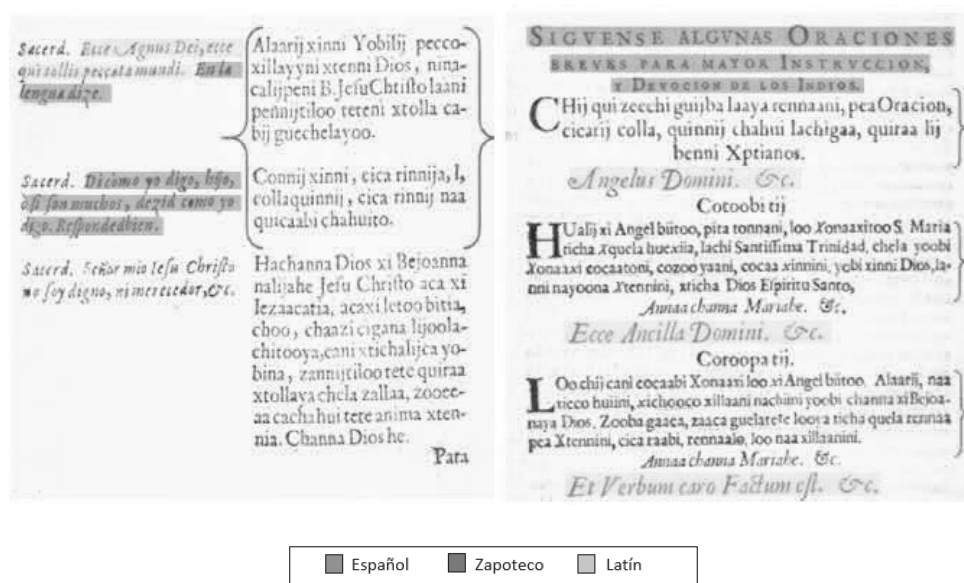 Sacerd. Ecce Agnus Dei, ecce
qui tollis peccata mundi. En la
lengua dize.
Alaarij xinni Yobilij pecco-
xillayyni xtenni Dios, nina-
calijpeni B. Jesu Christo laani
pennijtiloo tereni xtolla ca-
bij guechelayoo.
Sacerd. Di como yo digo, hijo,
ò si son muchos, dezid como yo
digo. Respondedbien.
Connij xinni, cica rinnija, l,
collaquinnij, cica rinnij naa
quicaabi chahuito.
Sacerd. Señor mio Iesu Christo
no soy digno, ni merecedor, &c.
Hachanna Dios xi Bejoanna
nalijahe Jesu Christo aca xi
lezaacatia, acaxi letoo bitia,
choo, chaazi cigana lijoola-
chitooya, cani xtichalijca yo-
bina, zannijtiloo tete quiraa
xtollaya chela zallaa, zooce-
aa cacha hui tete anima xten-
nia. Channa Dios he.
Para
SIGVENSE ALGVNAS ORACIONES
BREVES PARA MAYOR INSTRVCCION,
Y DEVOCION DE LOS INDIOS.
CHij qui zecchi guijba laaya rennaani, pea Oracion,
cicarij colla, quinnij chahui lachigaa, quiraa lij
benni Xptianos.
Angelus Domini. &c.
Cotoobi tij
HUalij xi Angel biitoo, pita tonnani, loo Xonaaxitoo S. Maria
ticha Xquela huexiia, lachi Santissima Trinidad, chela yoobi
Xonaaxi cocaatoni, cozoo yaani, cocaa xinnini, yobi xinni Dios, la-
nni nayoona Xtennini, xticha Dios Espiritu Santo,
Annaa channa Mariahe. &c.
Ecce Ancilla Domini. &c.
Coroopa tij.
LOo chij cani cocaabi Xonaaxi loo xi Angel biitoo. Alaarij, naa
ticco huiini, xichooco xillaani nachiini yoobi channa xi Bejoa-
naya Dios. Zooba gaaca, zaaca guelatete looya ticha quela rennaa
pea Xtennini, cica raabi, rennaale, loo naa xillaanini.
Annaa channa Mariahe. &c.
Et Verbum caro Factum est. &c.
Español Zapoteco Latín